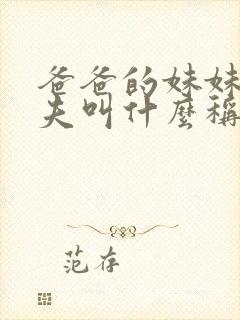 爸爸的妹妹
夫叫什麼稱
范存